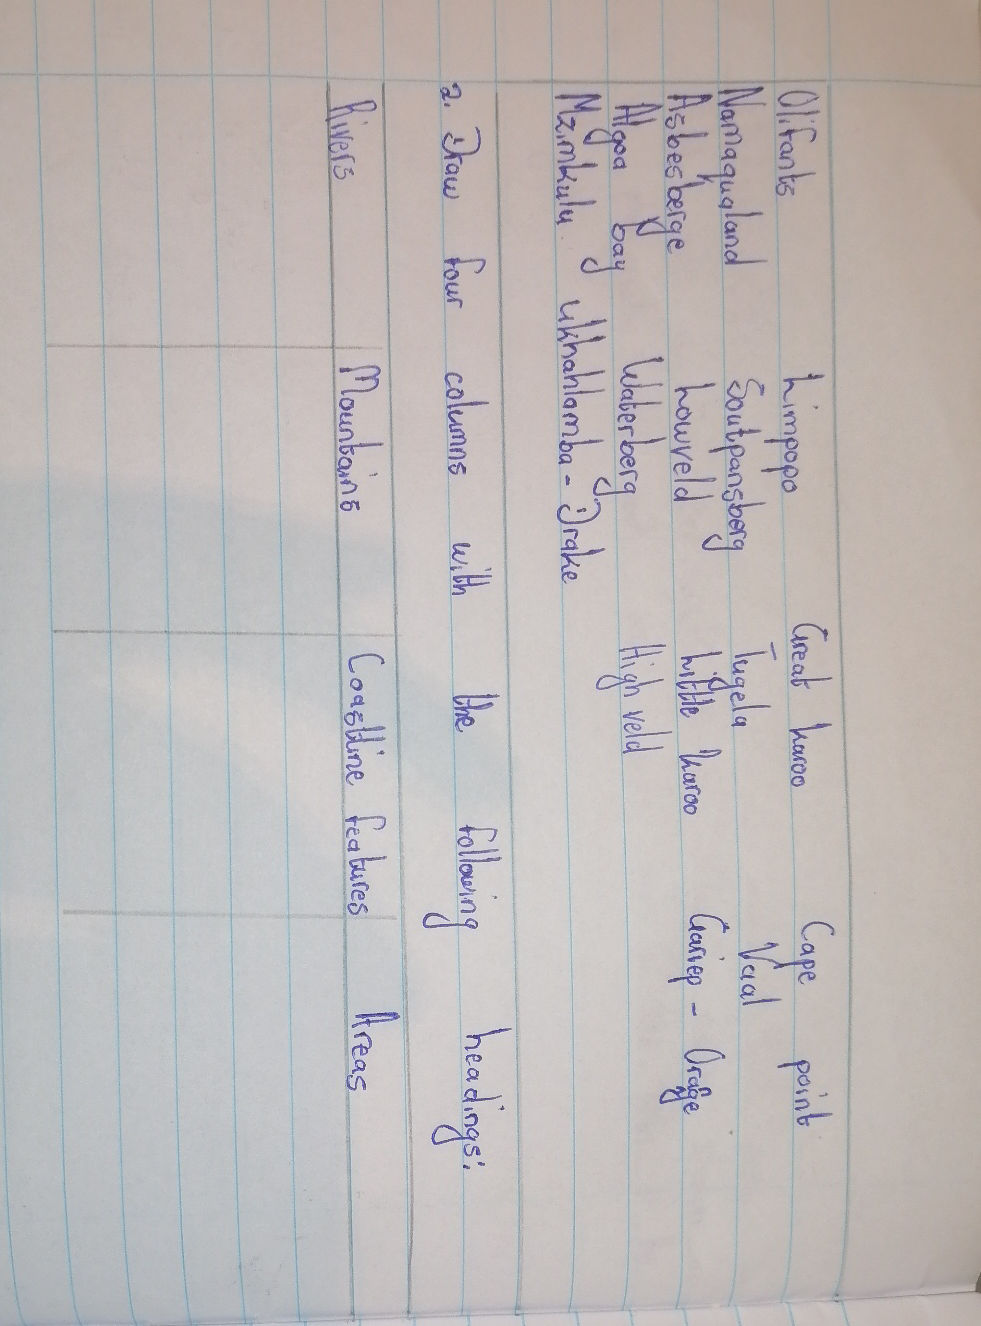 Olifants Limpopo Great karoo Cape point
Namaqualand Soutpansberg Tugela Vaal
Asbesberge Lowveld Little karoo Gariep - Orage
Algoa bay Waterberg High veld
Mzimkulu ukhahlamba - Drake
2. Draw four columns with the following headings:
Rivers Mountains Coastline features Areas